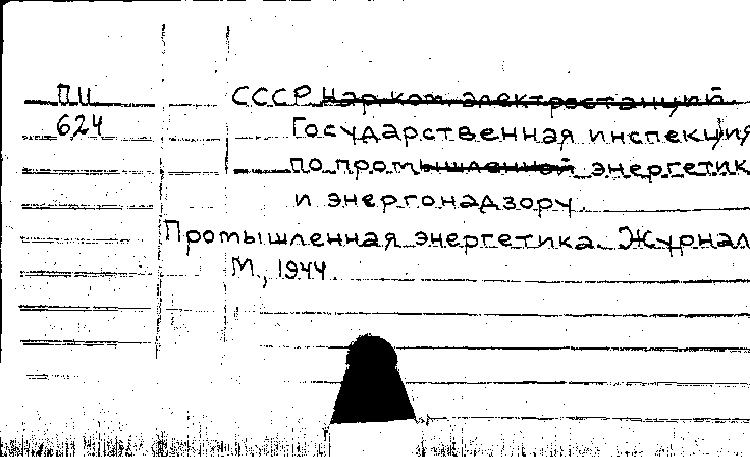 П11
624
СССР Нар.ком. электростанций.
Государственная инспекция
по промышленной энергетик
и энергонадзору.
Промышленная энергетика. Журнал
М., 1944.